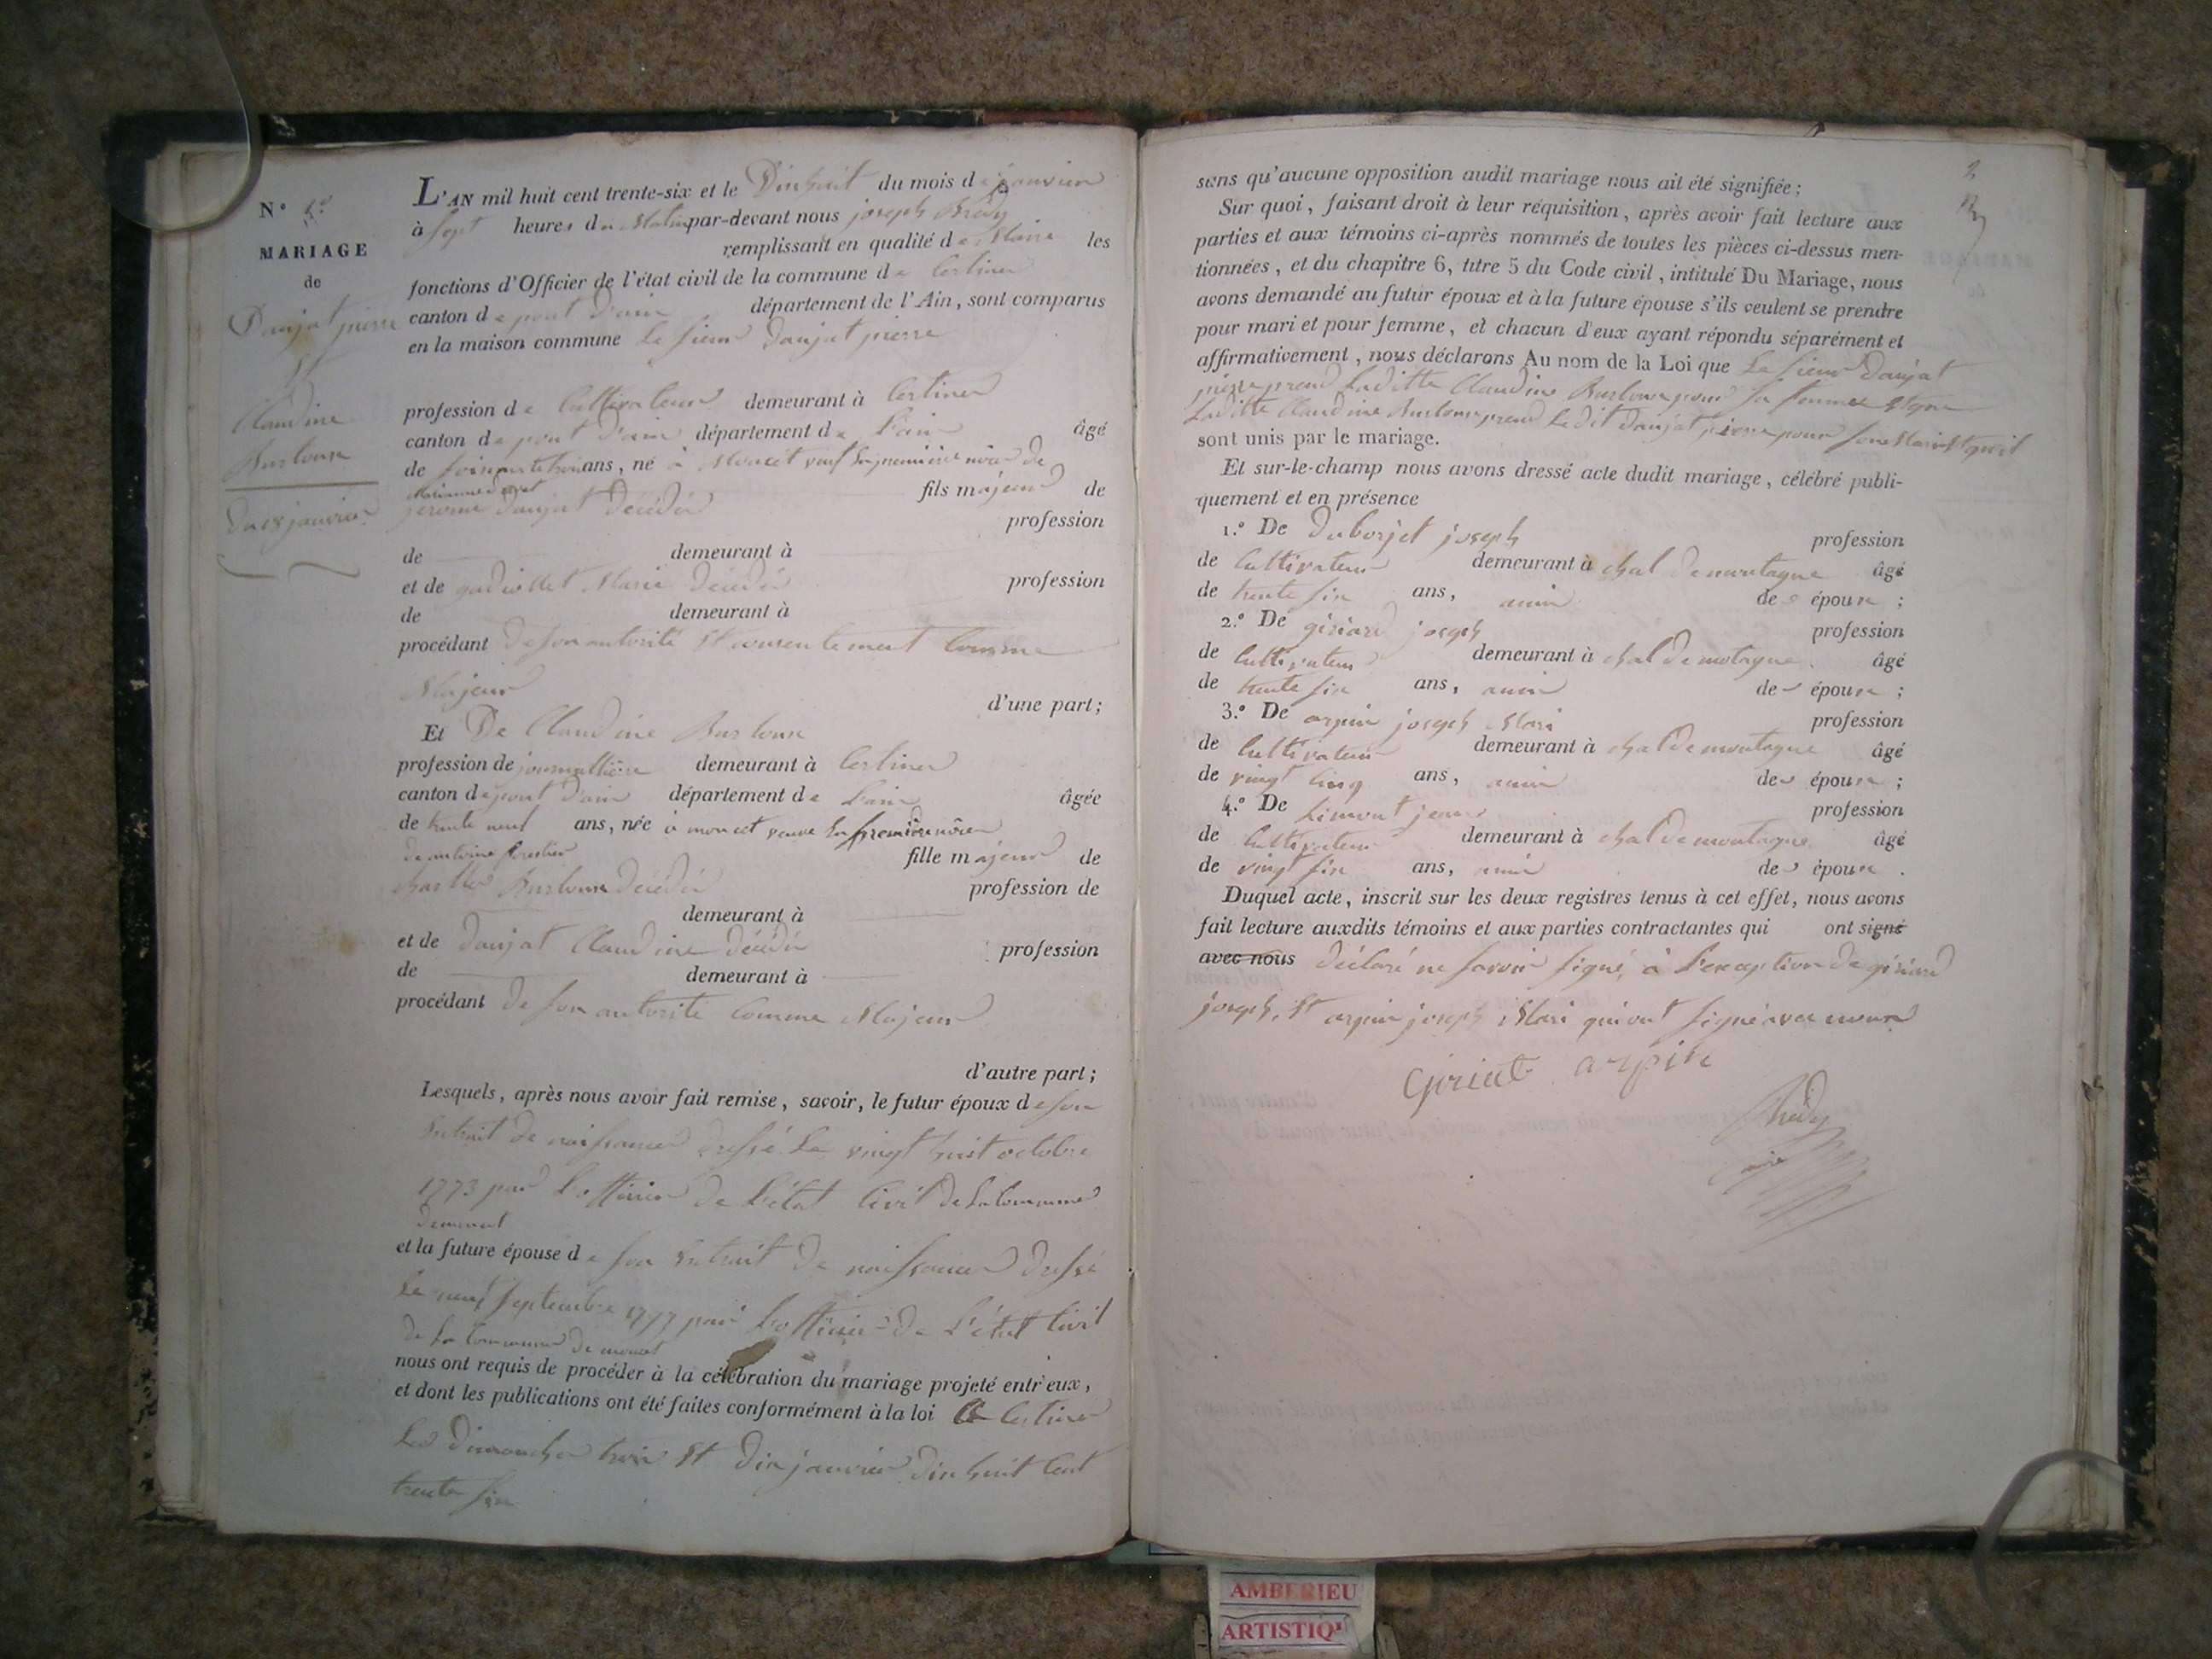 N.º 1.er
MARIAGE
de
Danjat pierre
et
Claudine
Burtoux
Du 18 janvier
L'AN mil huit cent trente-six et le Dixhuit du mois de janvier
à sept heures du Matin par-devant nous joseph
remplissant en qualité de Maire les
fonctions d'Officier de l'état civil de la commune de Certines
canton de pont d'ain département de l'Ain, sont comparus
en la maison commune Le sieur Danjat pierre
profession de Cultivateur demeurant à Certines
canton de pont d'ain département de L'ain âgé
de ans, né à veuf En première nôce de
fils majeur de
jerome Danjat Décédé profession
de demeurant à
et de Marie Décédé profession
de demeurant à
procédant De son autorité Et consentement Comme
Majeur
d'une part;
Et De Claudine Burtoux
profession de journallière demeurant à Certines
canton de pont d'ain département de L'ain âgée
de trente neuf ans, née à moncet veuve En première nôce
de antoine forestier
fille majeur de
Burtoux Décédé profession de
demeurant à
et de Danjat Claudine Décédé profession
de demeurant à
procédant De son autorité Comme Majeur
d'autre part;
Lesquels, après nous avoir fait remise, savoir, le futur époux de son
Extrait de naissance dressé Le vingt huit octobre
1773 par L'officier de L'état Civil de La Commune
et la future épouse de son Extrait De naissance Dressé
Le neuf Septembre 1797 par L'officier De L'état Civil
de La Commune De moncet
nous ont requis de procéder à la célébration du mariage projeté entr'eux,
et dont les publications ont été faites conformément à la loi Certines
Les Dimanches trois Et Dix janvier Dix huit Cent
trente six
2
sans qu'aucune opposition audit mariage nous ait été signifiée;
Sur quoi, faisant droit à leur réquisition, après avoir fait lecture aux
parties et aux témoins ci-après nommés de toutes les pièces ci-dessus men-
tionnées, et du chapitre 6, titre 5 du Code civil, intitulé Du Mariage, nous
avons demandé au futur époux et à la future épouse s'ils veulent se prendre
pour mari et pour femme, et chacun d'eux ayant répondu séparément et
affirmativement, nous déclarons Au nom de la Loi que Le sieur Danjat
pierre prend Laditte Claudine Burtoux pour sa femme Et que
Laditte Claudine Burtoux prend Ledit Danjat pierre pour son Mari Et qu'il
sont unis par le mariage.
Et sur-le-champ nous avons dressé acte dudit mariage, célébré publi-
quement et en présence
1.º De Duborjet joseph profession
de Cultivateur demeurant à chal De montagne âgé
de trente six ans, amis des époux;
2.º De giriard joseph profession
de Cultivateur demeurant à chal De motagne âgé
de trente six ans, amis des époux;
3.º De arpin joseph Mari profession
de Cultivateur demeurant à chal De montagne âgé
de vingt Cinq ans, amis des époux;
4.º De profession
de Cultivateur demeurant à chal De montagne âgé
de vingt six ans, amis des époux.
Duquel acte, inscrit sur les deux registres tenus à cet effet, nous avons
fait lecture auxdits témoins et aux parties contractantes qui ont signé
avec nous déclaré ne savoir signé, à L'exception De giriard
joseph, Et arpin joseph Mari qui ont signé avec nous
Giriat arpin
maire
AMBERIEU
ARTISTIQ